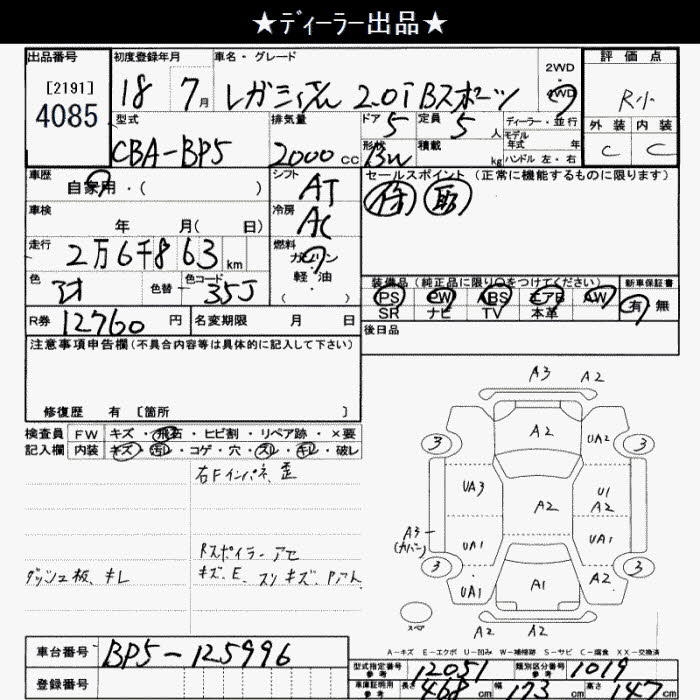 ★ディーラー出品★
出品番号
[2191]
4085
初度登録年月
18 7月
車名・グレード
2.0i Bスポーツ
2WD
4WD
評価点
R小
外装 内装
C C
型式
CBA-BP5
排気量
2000 CC
ドア
5
定員
5人
形状
積載
kg
ディーラー・並行
モデル
年式 年
ハンドル 左・右
車歴
自家用・( )
シフト
AT
セールスポイント (正常に機能するものに限ります)
車検
年 月( 日)
冷房
AC
走行
2万6千863 km
燃料
ガソリン
軽・油
( )
色
色替
色コード
35J
装備品 (純正品に限り○をつけてください)
PS PW ABS エアB AW
SR ナビ TV 本革
新車保証書
有 無
R券 12760 円
名変期限 月 日
後日品
注意事項申告欄(不具合内容等は具体的に記入して下さい)
修復歴 有 [箇所 ]
検査員
記入欄
FW キズ・飛石・ヒビ割・リペア跡・×要
内装 キズ・汚れ・コゲ・穴・スレ・キレ・破レ
右Fインパネ、歪
Rスポイラーアセ
キズ、E、スリキズ、
ダッシュ板、キレ
A3 A2
A2
3 UA2 3
UA3 A2 U1
A2
A3
(カバー)
UA1 UA1
3 UA1 A1 A2 3
スペア
A2 A2
A-キズ E-エクボ U-凹み W-補修跡 S-サビ C-腐食 XX-交換済
車台番号 BP5-125996
登録番号
型式指定番号
参考
12051
類別区分番号
参考
1019
車庫証明用
参考
長さ 468 cm 幅 173 cm 高さ 147 cm